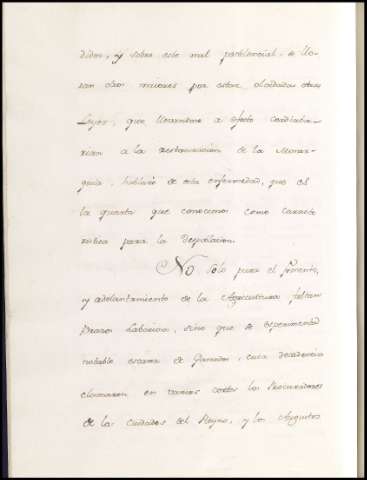 didos, y sobre este mal pestilencial, se llo-
ran otros maiores por estar olvidadas otras
Leyes, que llevandose a efecto contribui-
rian a la restauracion de la Monar-
quia, hablaré de esta enfermedad, que es
la quarta que conocemos como caracte
ristica para la despoblacion.
No solo para el fomento,
y adelantamiento de la Agricultura faltan
Brazos Laboriosos, sino que se experimenta
notable escasez de Ganados, cuia decadencia
clamaron en varias cortes los Procuradores
de las Ciudades del Reyno, y los Augustos